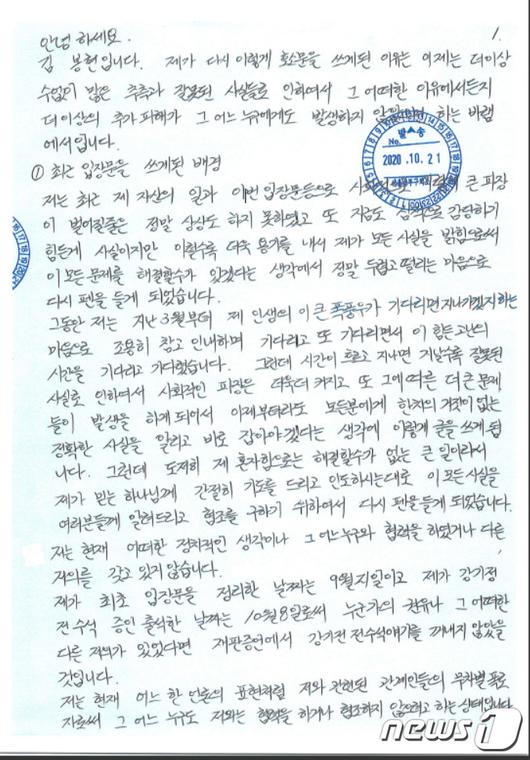 1.
안녕 하세요.
김 봉현입니다. 제가 다시 이렇게 호소문을 쓰게된 이유는 이제는 더이상
수없이 많은 추측과 잘못된 사실들로 인하여서 그 어떠한 이유에서든지
더이상의 추가 피해가 그 어느 누구에게도 발생하지 하는 바램
에서입니다.
No.
발송
2020.10.21
① 최근 입장문을 쓰게된 배경
저는 최근 제 자신의 일과 이번 입장문등으로 큰 파장
이 벌어질줄은 정말 상상도 하지 못하였고 또 지금도 감당하기
힘든게 사실이지만 이럴수록 더욱 용기를 내서 제가 모든 사실을 밝힘으로써
이 모든 문제를 해결할수가 있겠다는 생각에서 정말 두렵고 떨리는 마음으로
다시 펜을 들게 되었습니다.
그동안 저는 지난 3월부터 제 인생의 이 큰 폭풍우가 기다리면 지나가겠지 하는
마음으로 조용히 참고 인내하며 기다리고 또 기다리면서 이 힘든 고난의
시간을 기다리고 기다렸습니다. 그런데 시간이 흐르고 지나면 지날수록 잘못된
사실로 인하여서 사회적인 파장은 더욱더 커지고 또 그에 따른 더 큰 문제
들이 발생을 하게 되어서 이제부터라도 모든분에게 한치의 거짓이 없는
정확한 사실을 알리고 바로 잡아야 겠다는 생각에 이렇게 글을 쓰게 됩
니다. 그런데 도저히 제 혼자힘으로는 해결할수가 없는 큰 일이라서
제가 믿는 하나님께 간절히 기도를 드리고 인도하시는대로 이 모든 사실을
여러분들게 알려드리고 협조를 구하기 위하여서 다시 펜을 들게 되었습니다.
저는 현재 어떠한 정치적인 생각이나 그 어느 누구와 협력을 하였거나 다른
저의를 갖고 있지 않습니다.
제가 최초 입장문을 정리한 날짜는 9월21일이고 제가 강기정
전 수석 증인 출석한 날짜는 10월8일로써 누군가의 권유나 그 어떠한
다른 저의가 있었다면 재판증언에서 강기정 전수석얘기를 꺼내지 않았을
것입니다.
저는 현재 어느 한 언론의 표현처럼 저와 관련된 관계인들의 무차별 폭로
자로써 그 어느 누구도 저와는 협력을 하거나 협조하지 않으려고 하는 상태입니다
news1